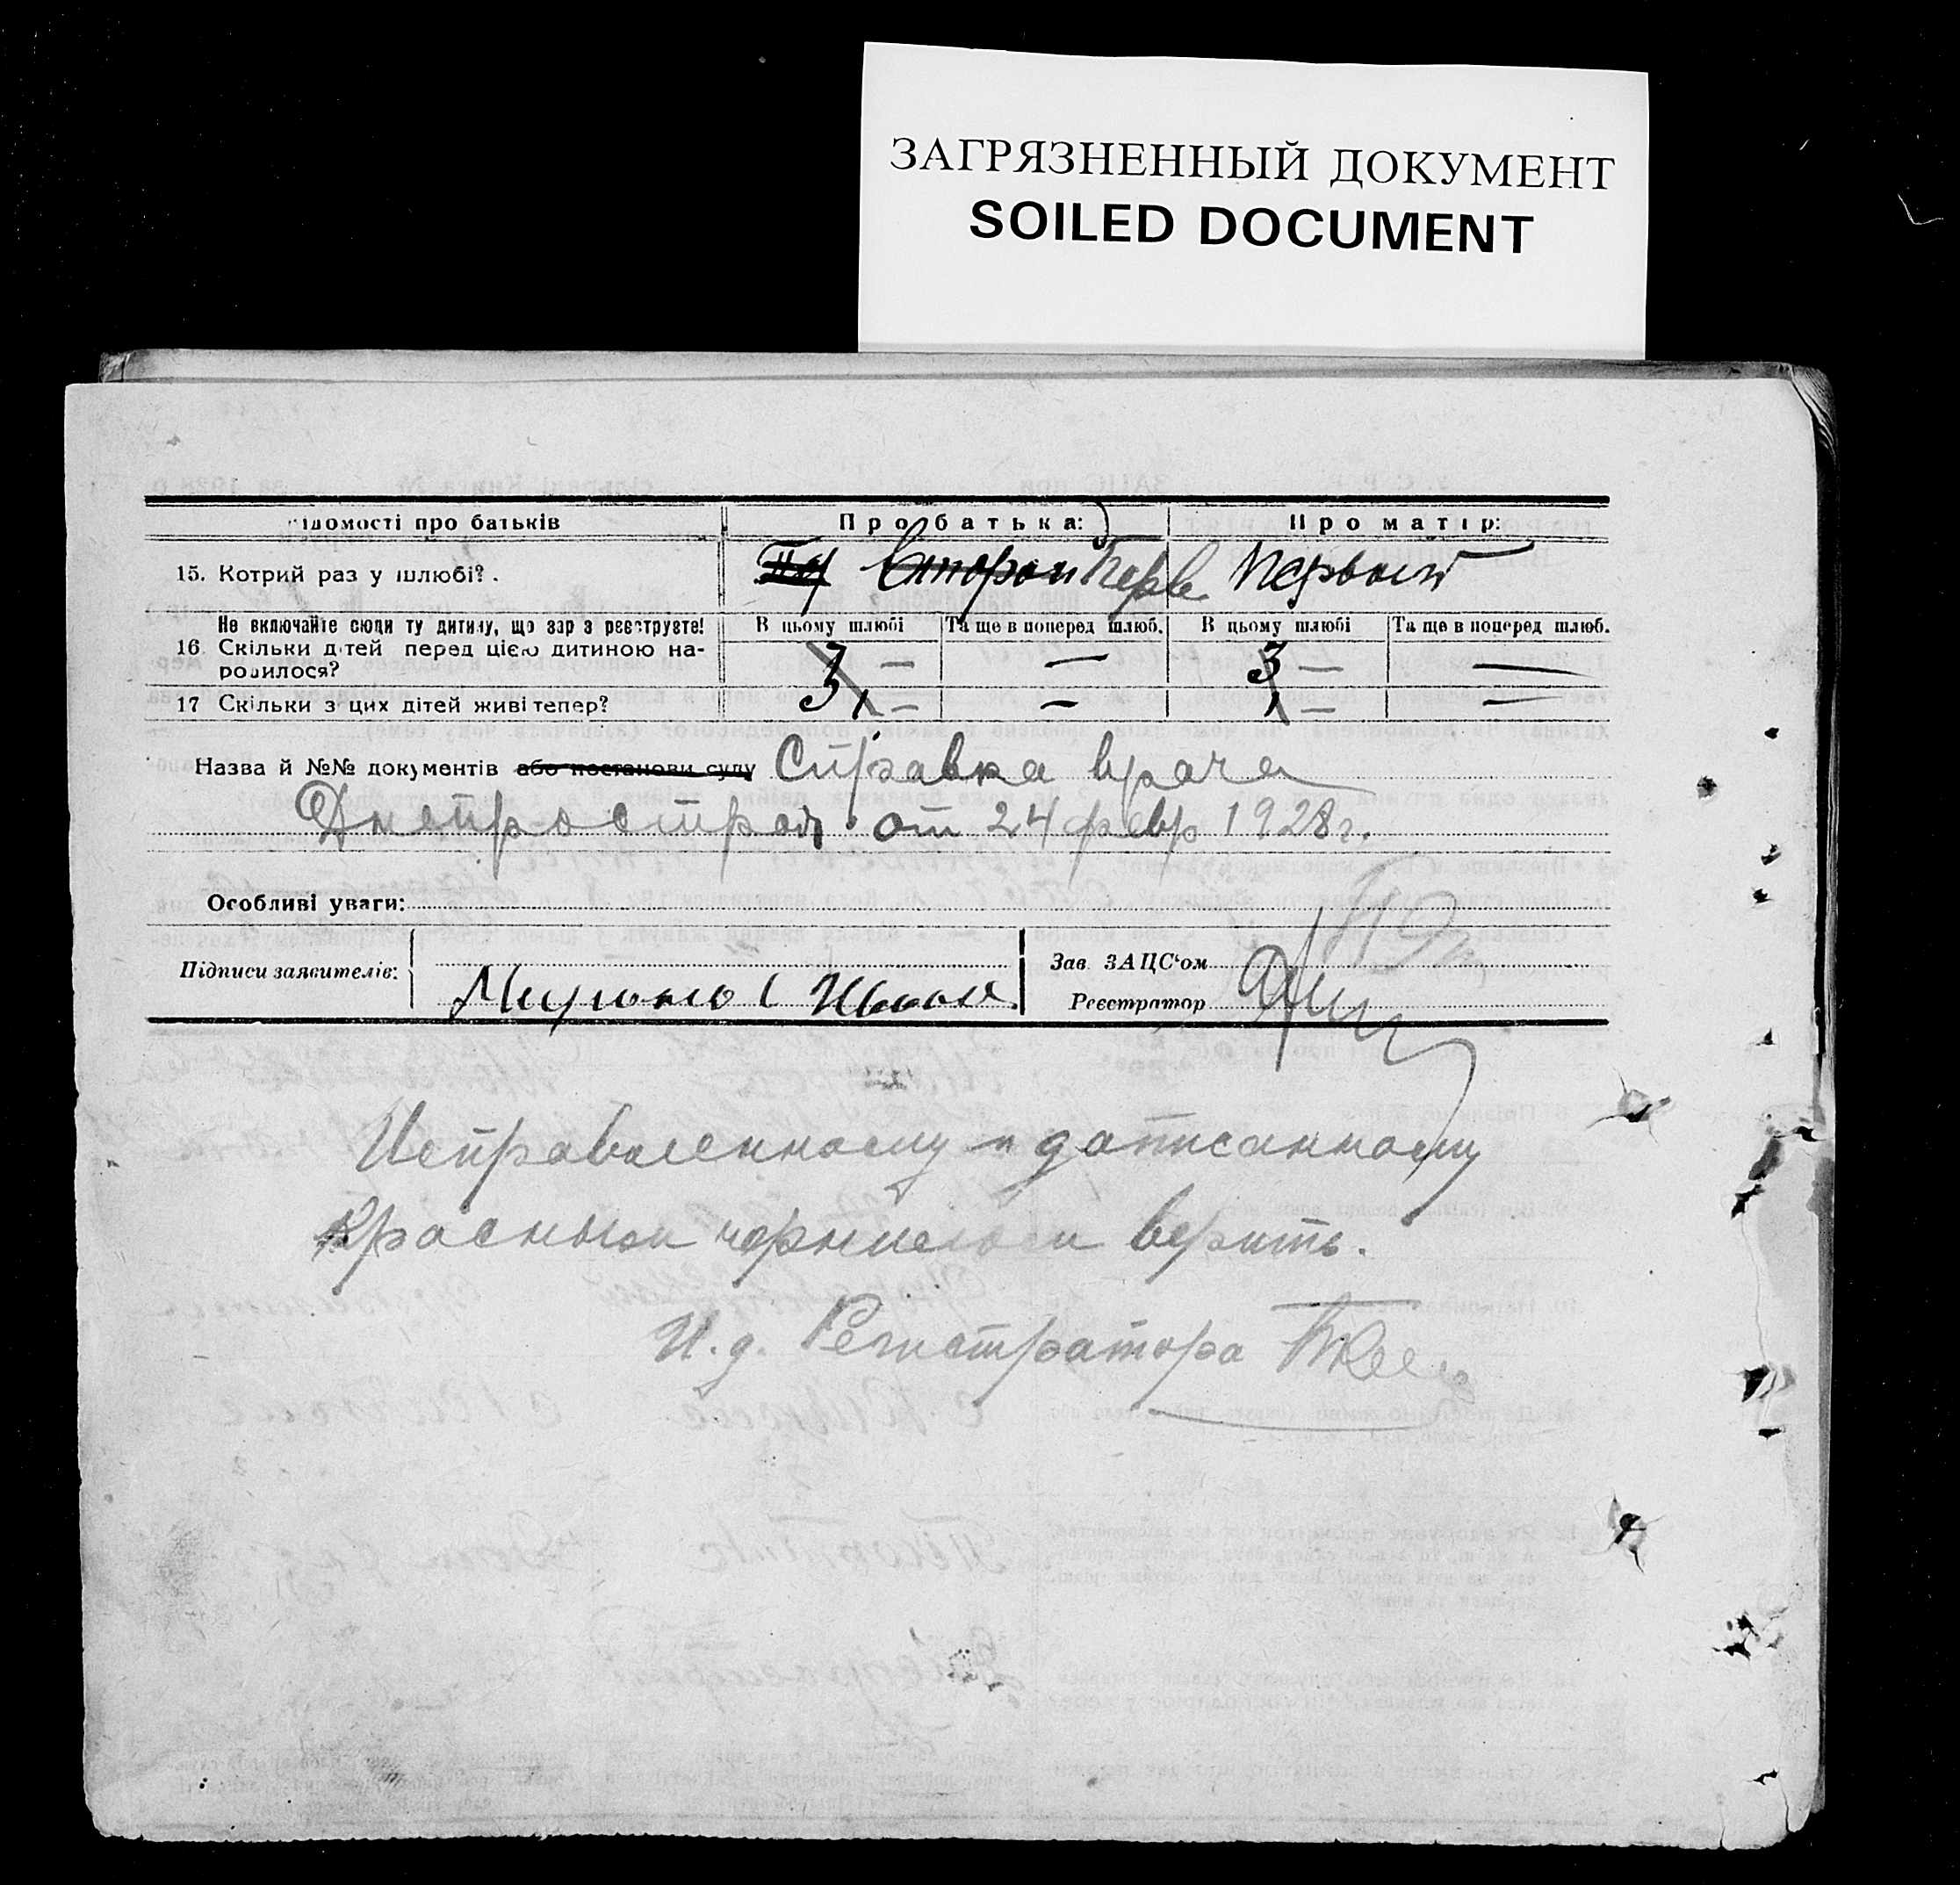 ЗАГРЯЗНЕННЫЙ ДОКУМЕНТ
SOILED DOCUMENT
ідомості про батьків Про батька: Про матір:
15. Котрий раз у шлюбі? второй Перв. Первый
Не включайте сюди ту дитину, що зар з реєструєте! В цьому шлюбі Та ще в поперед шлюб. В цьому шлюбі Та ще в поперед шлюб.
16 Скільки дітей перед цією дитиною на- 3 — — 3 — —
родилося?
17 Скільки з цих дітей живі тепер? 3 — — — —
Назва й №№ документів або постанови суду Справка врача
Днепрострой от 24 февр 1928 г.
Особливі уваги:
Підписи заявителів: Зав ЗАЦС'ом
Иван Реєстратор
Исправленному и дописанному
красными чернилами верить.
И.д. Регистратора